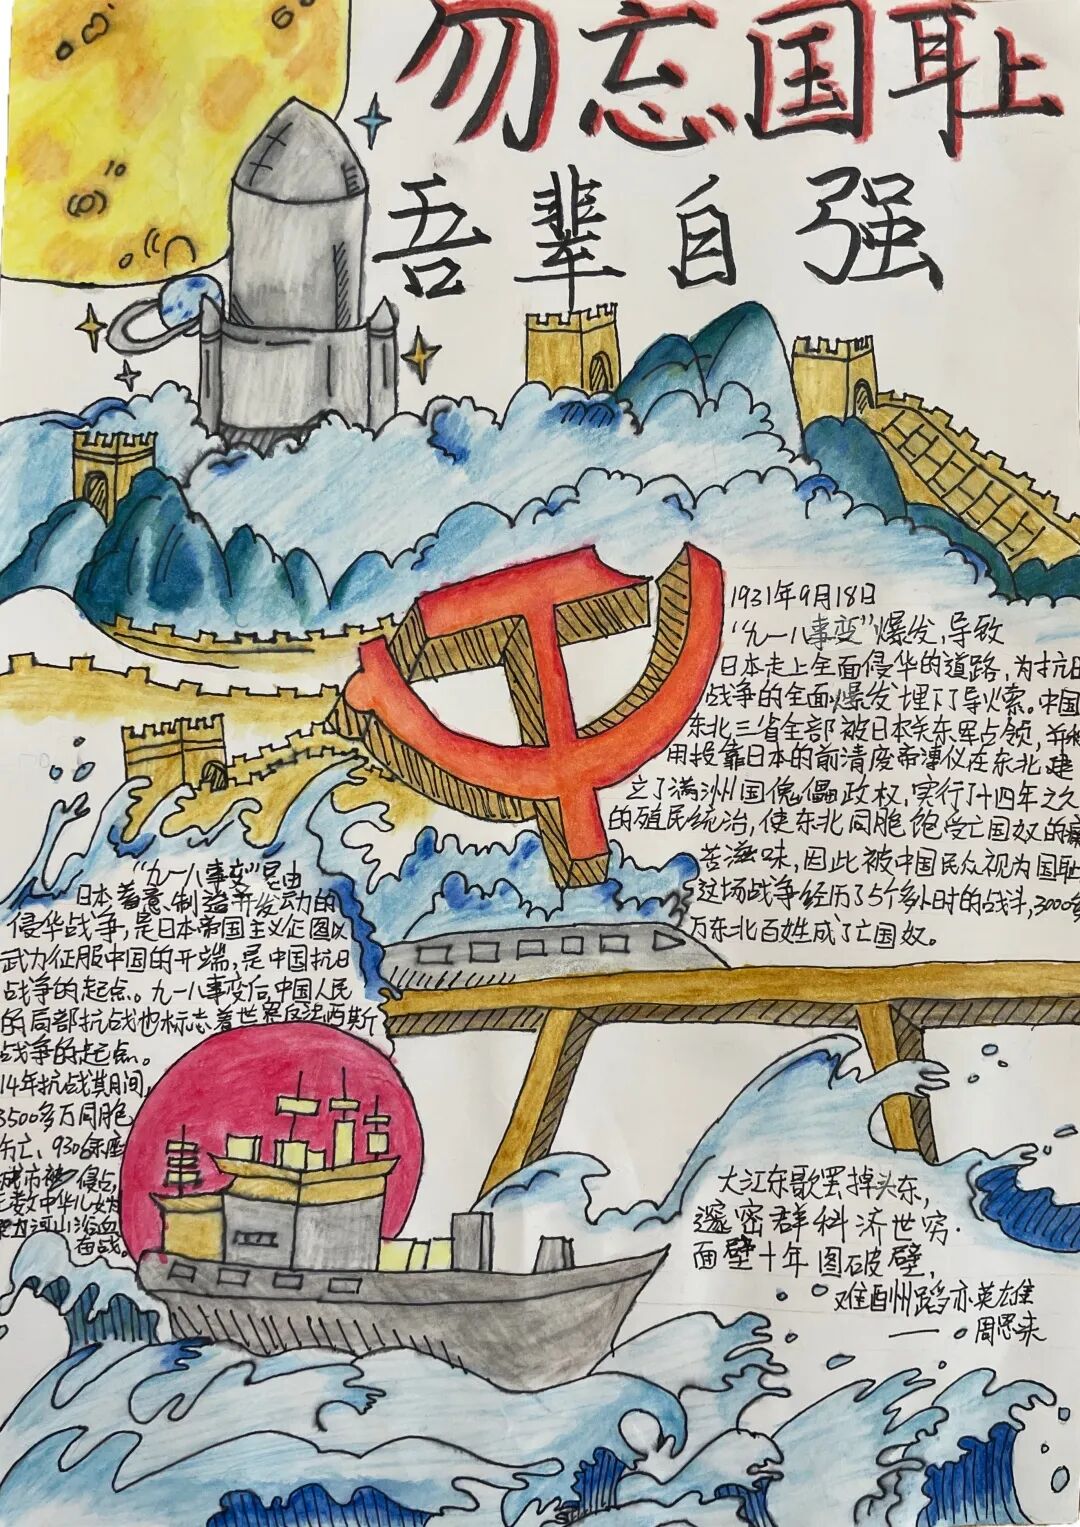 勿忘国耻
吾辈自强
1931年9月18日
“九一八事变”爆发,导致
日本走上全面侵华的道路,为抗日
战争的全面爆发埋下了导火索。中国
东北三省全部被日本关东军占领,并利
用投靠日本的前清废帝溥仪在东北建
立了满洲国傀儡政权,实行了十四年之久
的殖民统治,使东北同胞饱受亡国奴的
苦滋味,因此被中国民众视为国耻
这场战争经历了5个多小时的战斗,3000多
万东北百姓成了亡国奴。
“九一八事变”是由
日本蓄意制造并发动的
侵华战争,是日本帝国主义企图以
武力征服中国的开端,是中国抗日
战争的起点。九一八事变后,中国人民
的局部抗战也标志着世界反法西斯
战争的起点。
14年抗战其期间,
3500多万同胞
伤亡、930余座
城市被侵占,
无数中华儿女为
河山浴血
奋战。
大江东歌罢掉头东,
邃密群科济世穷.
面壁十年图破壁,
难酬州蹈亦英雄
——。周恩来